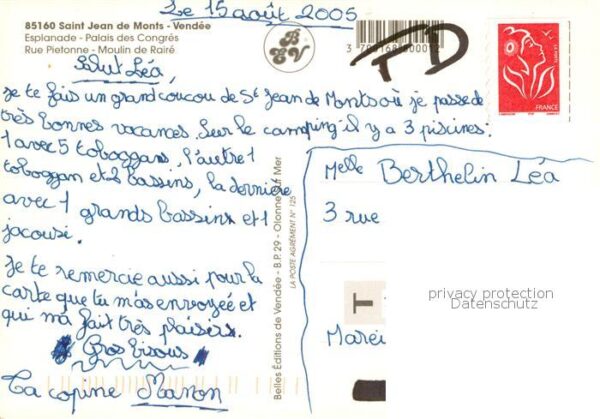 Le 15 août 2005
85160 Saint Jean de Monts - Vendée
Esplanade - Palais des Congrés
Rue Pietonne - Moulin de Rairé
BEV
FD
LA POSTE
FRANCE
Salut Léa,
Je te fais un grand coucou de St Jean de Monts où je passe de
très bonnes vacances. Sur le camping il y a 3 piscines.
1 avec 5 toboggans, l'autre 1
toboggan et 2 bassins, la dernière
avec 1 grands bassins et 1
jacousi.
Je te remercie aussi pour la
carte que tu m'as envoyée et
qui m'a fait très plaisirs.
Gros bisous
Ta copine Manon
Belles Editions de Vendée - B.P. 29 - Olonne sur Mer
LA POSTE AGRÉMENT N° 125
Melle Berthelin Léa
3 rue
T
privacy protection
Datenschutz
Marei